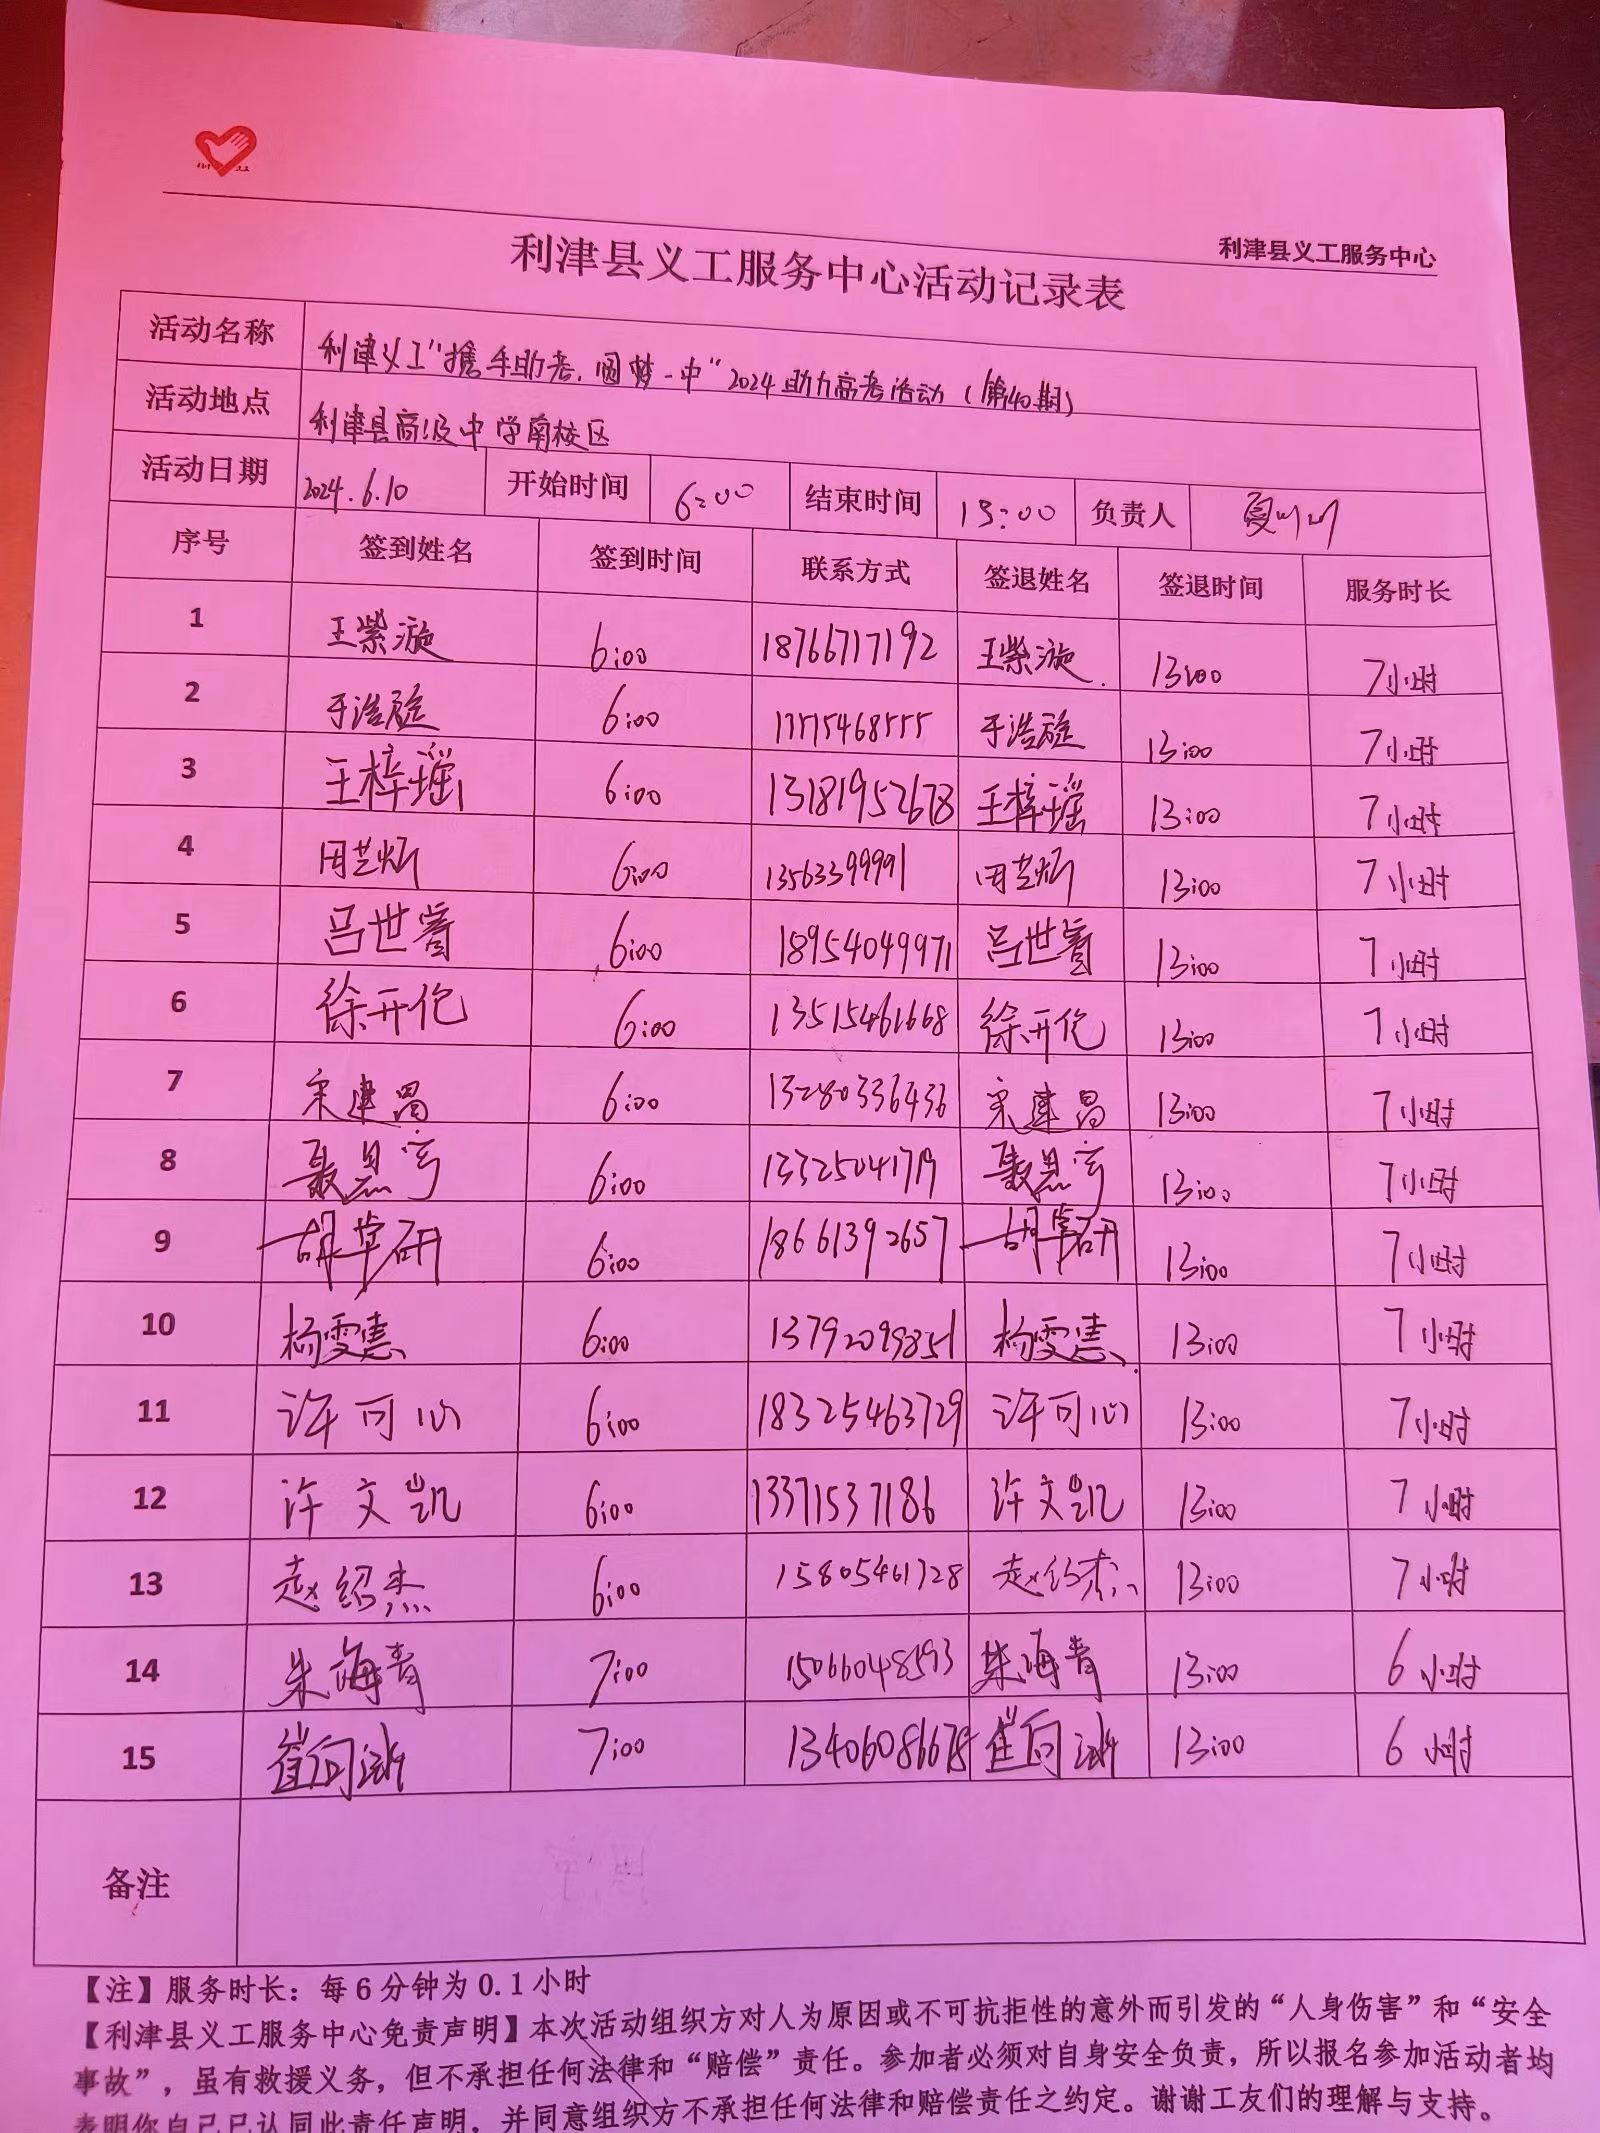 利津县义工服务中心
利津县义工服务中心活动记录表
活动名称 利津义工“携手助考,圆梦一中”2024助力高考活动(第40期)
活动地点 利津县高级中学南校区
活动日期 2024.6.10 开始时间 6:00 结束时间 13:00 负责人
序号 签到姓名 签到时间 联系方式 签退姓名 签退时间 服务时长
1 王紫漩 6:00 18766717192 王紫漩 13:00 7小时
2 于浩 6:00 于浩 13:00 7小时
3 王梓瑶 6:00 13181952678 王梓瑶 13:00 7小时
4 田芝炳 6:00 13563399991 田芝炳 13:00 7小时
5 吕世 6:00 18954049971 吕世 13:00 7小时
6 徐开伦 6:00 13515461668 徐开伦 13:00 7小时
7 宋建昌 6:00 13280336436 宋建昌 13:00 7小时
8 聂恩 6:00 聂恩 13:00 7小时
9 胡草研 6:00 18661392657 胡草研 13:00 7小时
10 杨雯惠 6:00 13792099851 杨雯惠 13:00 7小时
11 许可心 6:00 18325463729 许可心 13:00 7小时
12 许文凯 6:00 13371537186 许文凯 13:00 7小时
13 赵绍杰 6:00 15805461728 赵绍杰 13:00 7小时
14 朱海青 7:00 15066048593 朱海青 13:00 6小时
15 崔向 7:00 13406086678 崔向 13:00 6小时
备注
【注】服务时长：每6分钟为0.1小时
【利津县义工服务中心免责声明】本次活动组织方对人为原因或不可抗拒性的意外而引发的“人身伤害”和“安全
事故”，虽有救援义务，但不承担任何法律和“赔偿”责任。参加者必须对自身安全负责，所以报名参加活动者均
表明你自己已认同此责任声明，并同意组织方不承担任何法律和赔偿责任之约定。谢谢工友们的理解与支持。